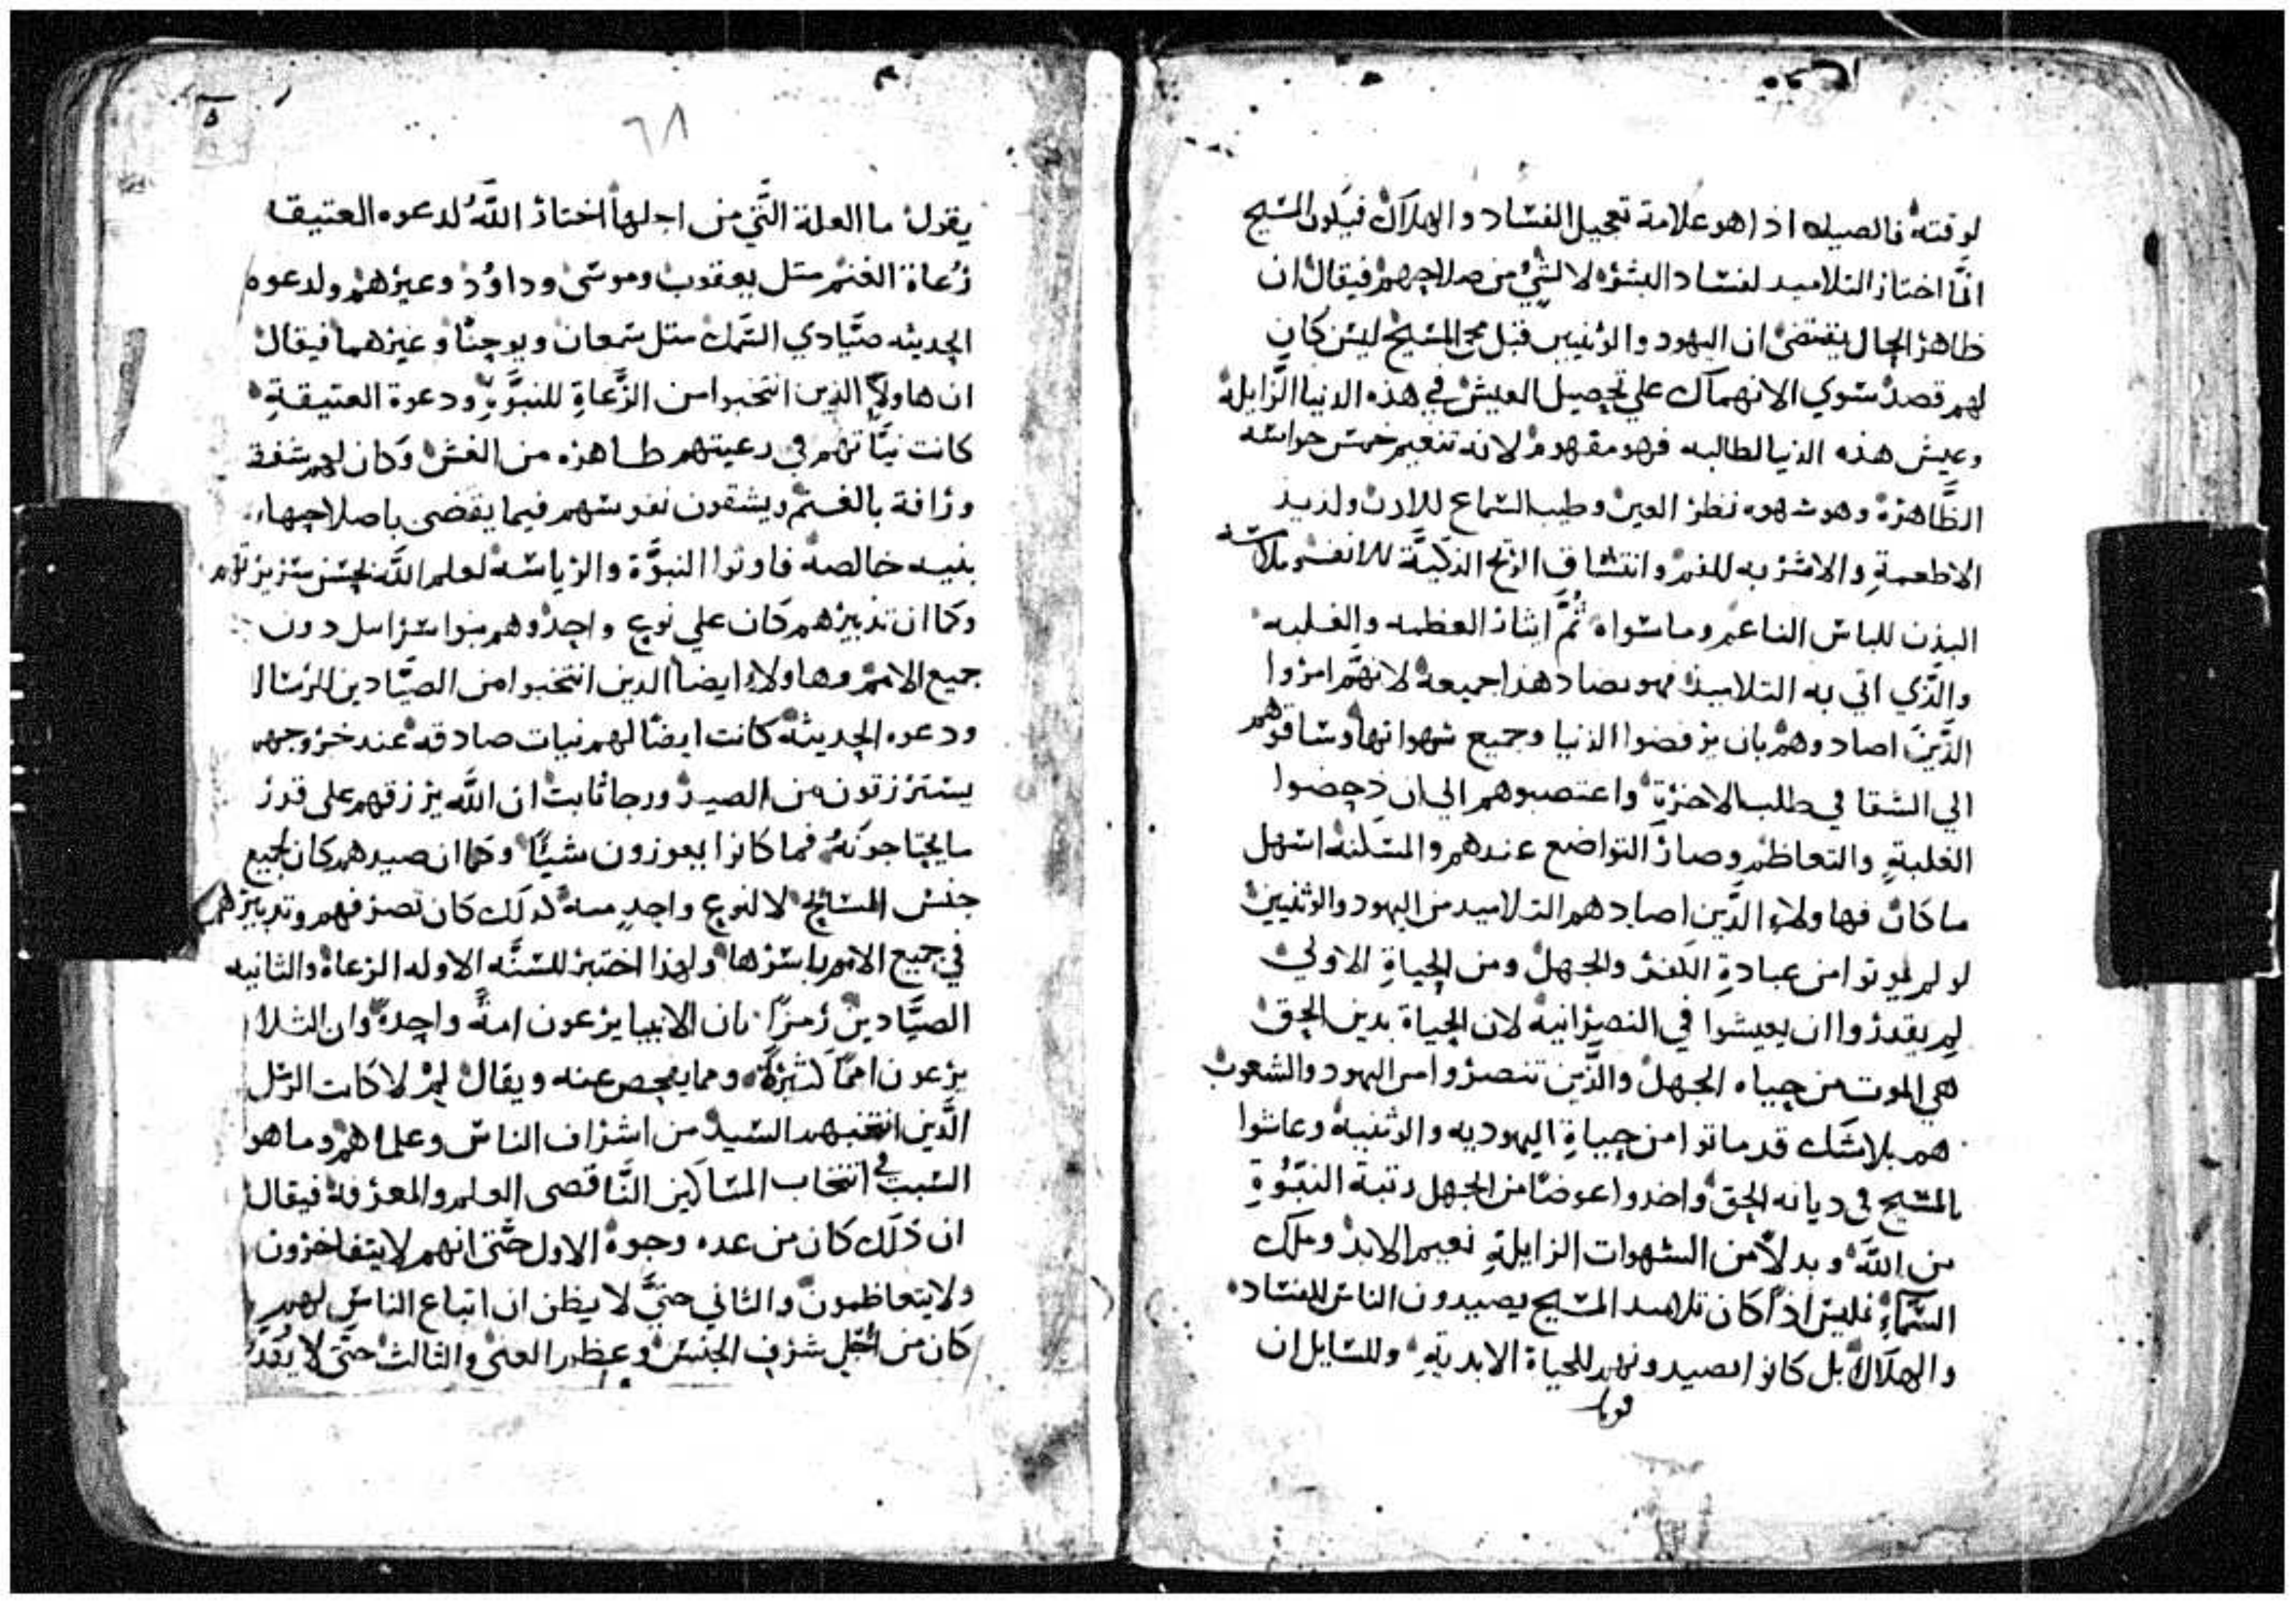 لوقته فالصيد اذا هو علامة تعجيل الفساد والهلاك فيكون المسيح
انما اختار التلاميد لفساد البشر لا لشي من صلاحهم فيقال ان
ظاهر الحال يقتضى ان اليهود والوثنيين قبل مجي المسيح ليس كان
لهم قصد سوي الانهماك علي تحصيل العيش في هذه الدنيا الزايلة
وعيش هذه الدنيا لطالبه فهو مفهوم لانه تنعيم خمس حواسه
الظاهرة وهو شهوه نظر العين وطيب السماع للادن ولذيذ
الاطعمة والاشربه للفم وانتشاق الريح الذكية للانف وملامسة
البدن للباس الناعم وما سواه ثم ايثار العظمه والغلبه
والذي اتي به التلاميذ فهو يضاد هذا جميعه لانهم امروا
الذين اصادوهم بان يرفضوا الدنيا وجميع شهواتها وساقوهم
الي الشقا في طلب الاخرة واغتصبوهم الي ان دحضوا
الغلبة والتعاظم وصار التواضع عندهم والمسكنه اسهل
ما كان فهاولاء الذين اصادهم التلاميد من اليهود والوثنيين
لو لم يموتوا من عبادة الكفر والجهل ومن الحياة الاولي
لم يقدروا ان يعيشوا في النصرانية لان الحياة بدين الحق
هي الموت من حياه الجهل والذين تنصروا من اليهود والشعوب
هم بلا شك قد ماتوا من حياة اليهوديه والوثنيه وعاشوا
بالمسيح في ديانه الحق واخدوا عوضا من الجهل رتبة النبوة
من الله وبدلا من الشهوات الزايلة نعيم الابد وملك
السماء فليس اذا كان تلاميد المسيح يصيدون الناس للفساد
والهلاك بل كانوا يصيدونهم للحياة الابدية وللسايل ان
٦٨
يقول ما العلة التي من اجلها اختار الله لدعوه العتيقه
رعاة الغنم متل يعقوب وموسى وداود وغيرهم ولدعوه
الحديثه صيادي السمك متل سمعان ويوحنا وغيرهما فيقال
ان هاولاء الذين انتخبوا من الرعاة للنبوة ودعوة العتيقة
كانت نياتهم في رعيتهم طاهره من الغش وكان لهم شفقة
ورافة بالغنم ويشقون نفوسهم فيما يقضى باصلاحها
بنيه خالصه فاوتوا النبوة والرياسه لعلم الله بحسن سريرتهم
وكما ان تدبيرهم كان علي نوع واحد وهم بنوا سراييل دون
جميع الامم وهاولاء ايضا الدين انتخبوا من الصيادين للرسالة
ودعوه الحديثة كانت ايضا لهم نيات صادقه عند خروجهم
يسترزقون من الصيد ورجا ثابت ان الله يرزقهم على قدر
ما يحتاجونه فما كانوا يعوزون شيئا وكما ان صيدهم كان لجميع
جنس السمك لا لنوع واحد منه كدلك كان تصرفهم وتدبيرهم
في جميع الامم باسرها ولهذا اختير للسنه الاوله الرعاة والثانيه
الصيادين رمزا بان الانبيا يرعون امة واحدة وان التلاميد
يرعون امما كثيرة ومما يفحص عنه ويقال لم لا كانت الرسل
الذين انتخبهم السيد من اشراف الناس وعلماهم وما هو
السبب في انتخاب المساكين الناقصى العلم والمعرفة فيقال
ان ذلك كان من عده وجوه الاول حتى انهم لا يتفاخرون
ولا يتعاظمون والثاني حتى لا يظن ان اتباع الناس لهم
كان من اجل شرف الجنس وعظم الغنى والثالث حتى لا يقدر